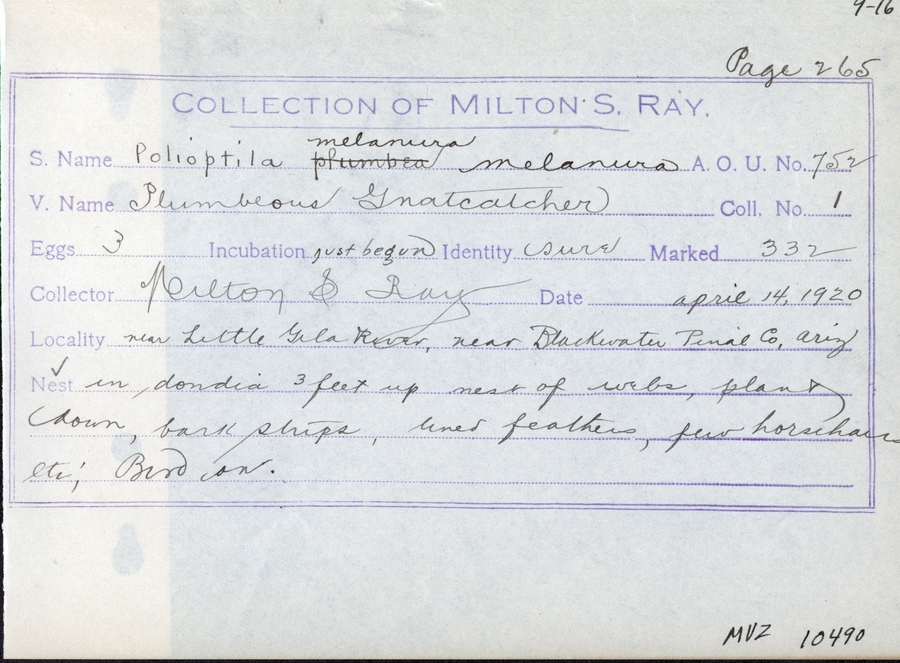 9-16
Page 265
COLLECTION OF MILTON S. RAY.
melanura
S. Name Polioptila plumbea melanura A. O. U. No. 752
V. Name Plumbeous Gnatcatcher Coll. No. 1
Eggs 3 Incubation just begun Identity sure Marked 332
Collector Milton S Ray Date april 14, 1920
Locality near Little Gila River, near Blackwater Pinal Co, Ariz
✓
Nest in dondia 3 feet up nest of webs, plant
down, bark strips, lined feathers, few horsehairs
etc; Bird on.
MVZ 10490